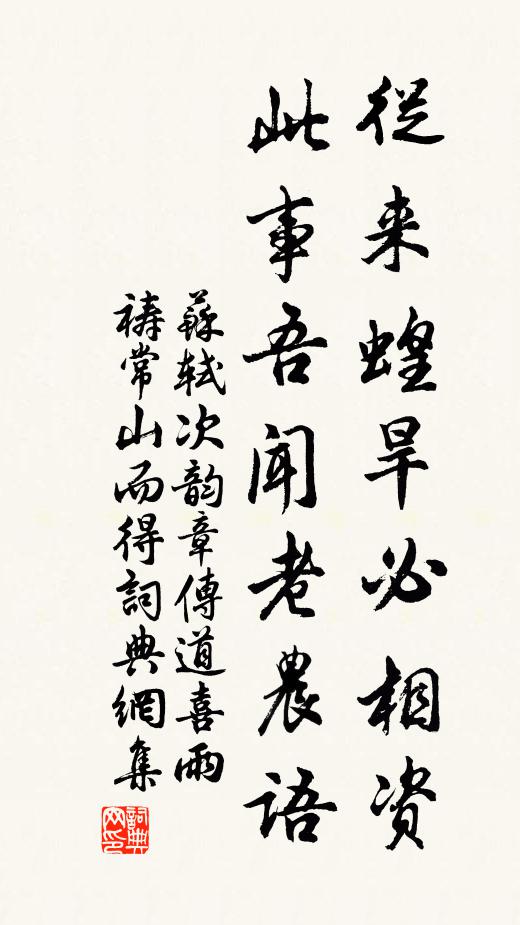 從来蝗旱必相资
此事吾聞老農語
蘇軾次韵章傳道喜雨
祷常山而得詞典網集
詞典网印